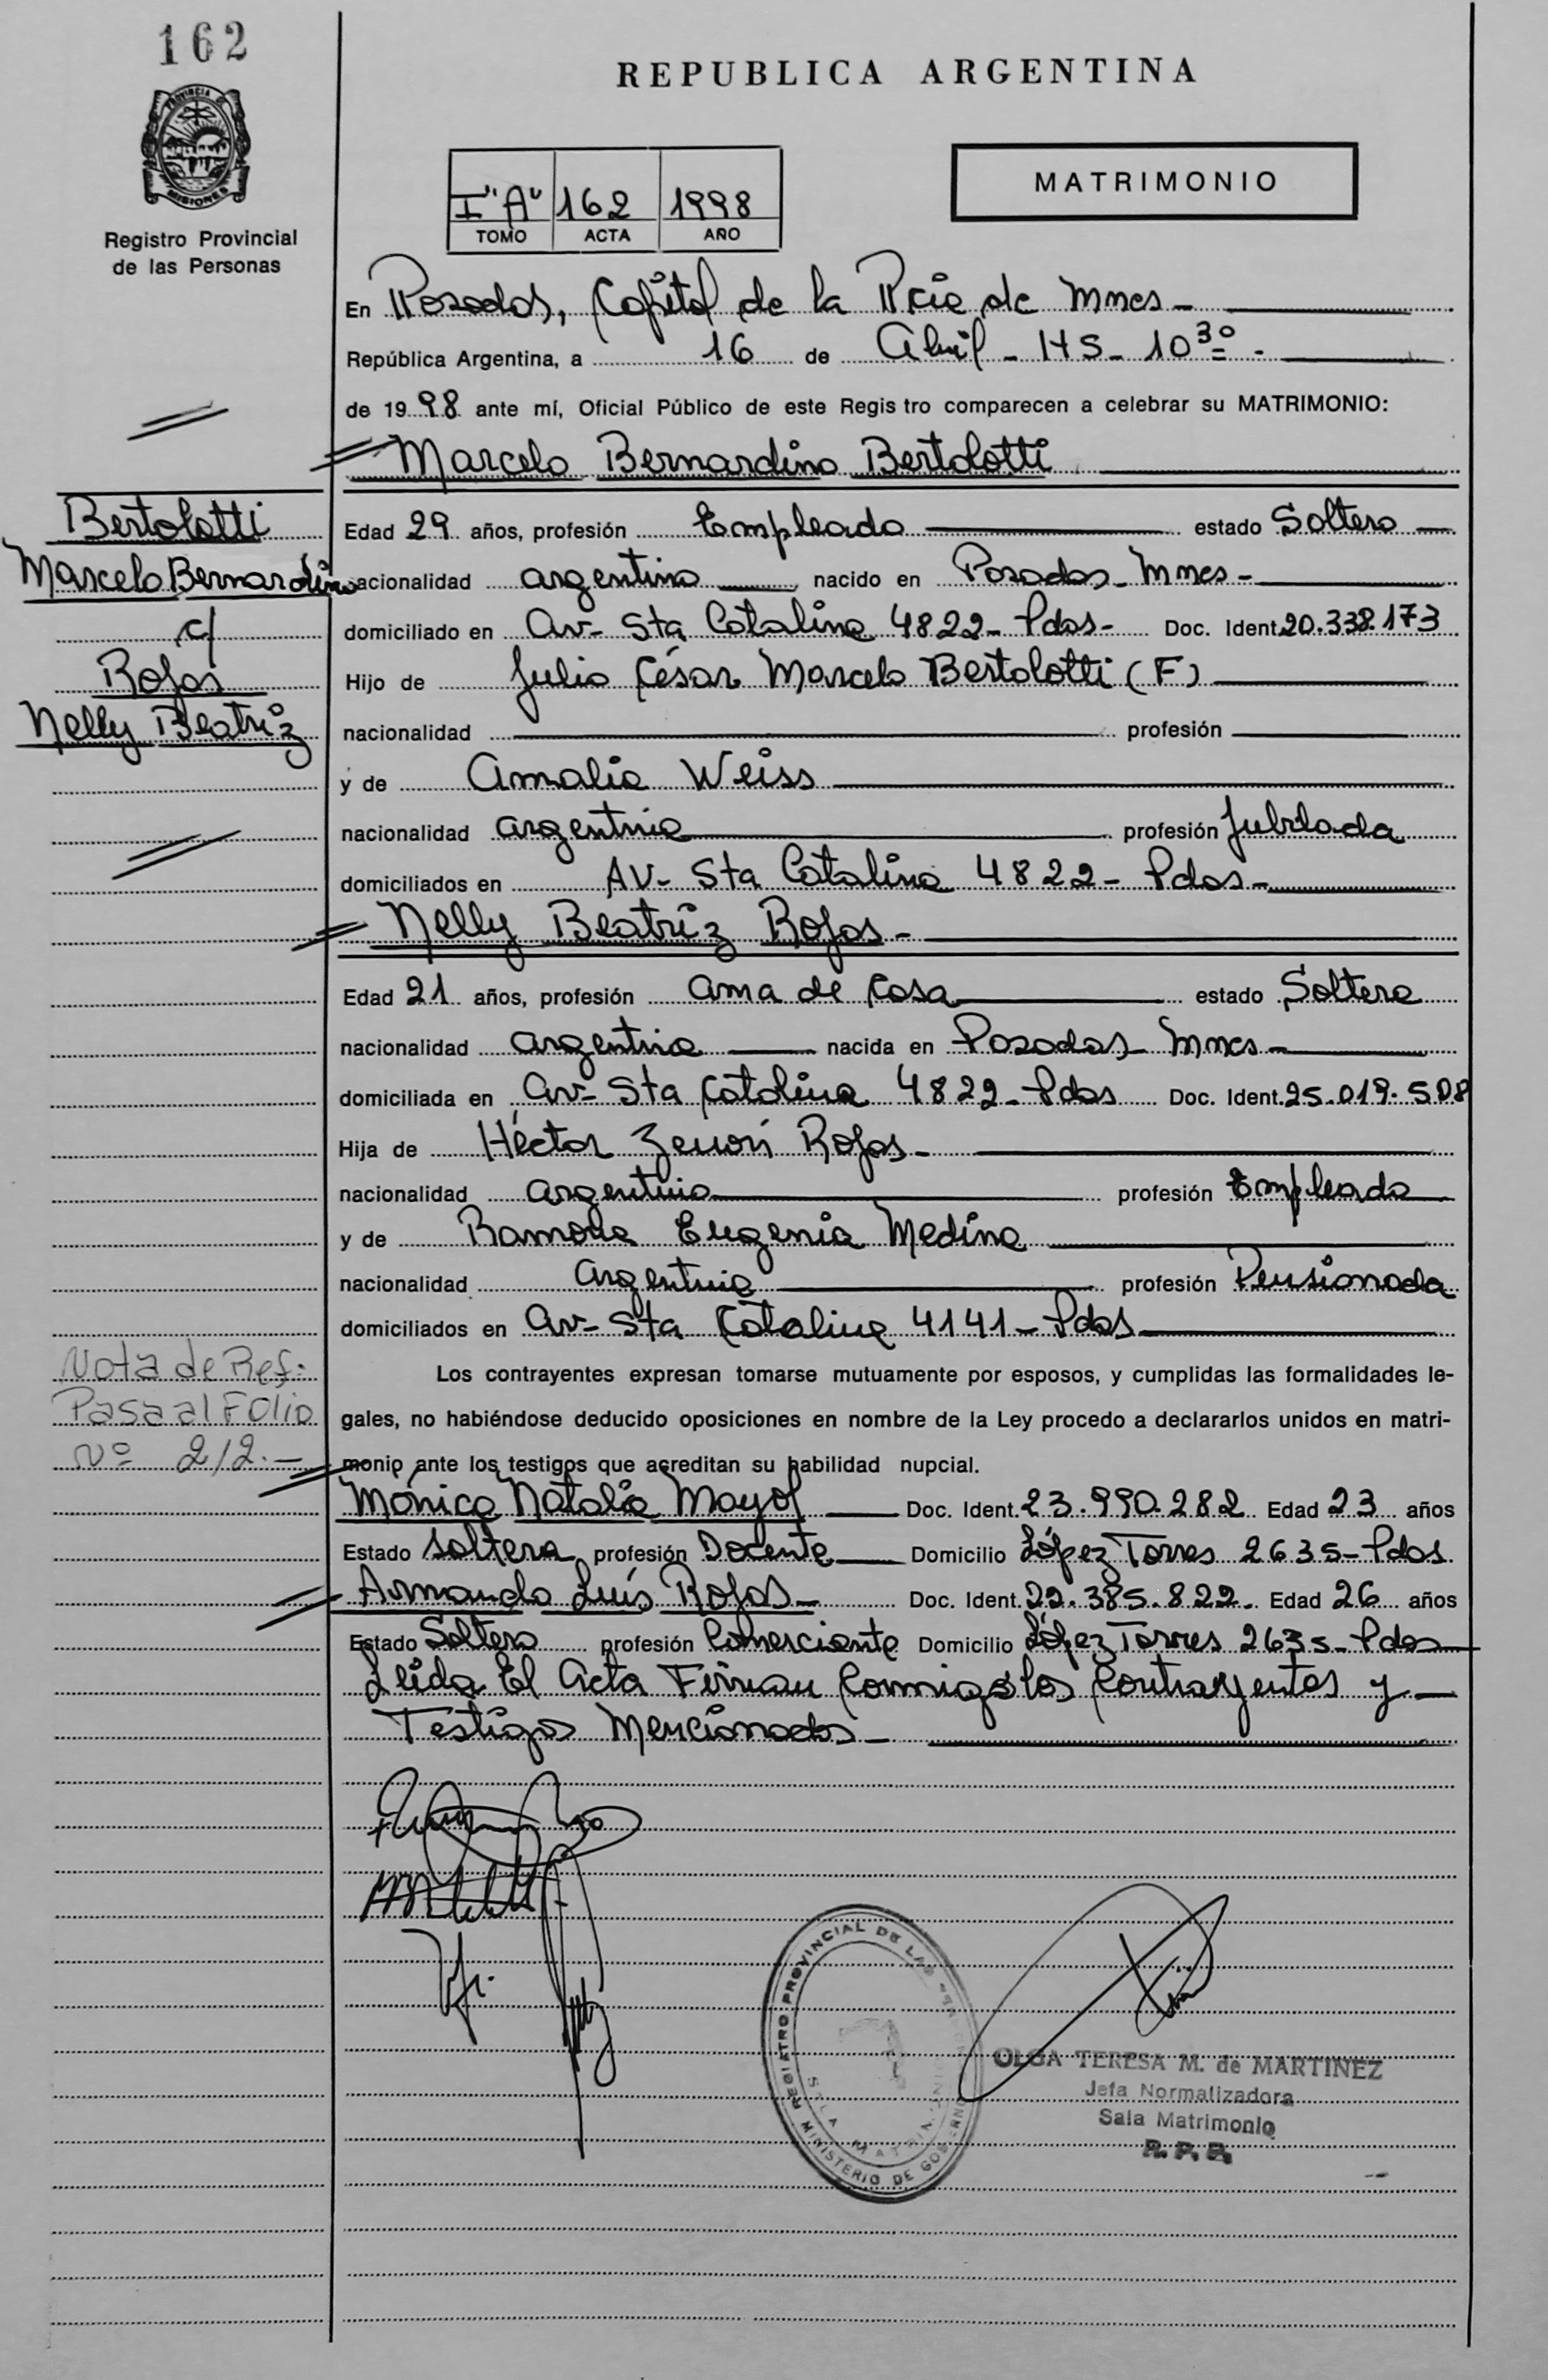 162
PROVINCIA DE
MISIONES
Registro Provincial
de las Personas
REPUBLICA ARGENTINA
MATRIMONIO
I "A" 162 1998
TOMO ACTA AÑO
En Posadas, Capital de la Pcia de Mnes-
República Argentina, a 16 de Abril - HS- 10³⁰ -
de 1998 ante mí, Oficial Público de este Regis tro comparecen a celebrar su MATRIMONIO:
Marcelo Bernardino Bertolotti
Bertolotti
Marcelo Bernardino
c/
Rojas
Nelly Beatriz
Edad 29 años, profesión Empleado estado Soltero
nacionalidad argentino nacido en Posadas- Mnes-
domiciliado en Av- Sta Catalina 4822- Pdas- Doc. Ident. 20.338.173
Hijo de Julio César Marcelo Bertolotti (F)
nacionalidad profesión
y de Amalia Weiss
nacionalidad argentina profesión Jubilada
domiciliados en AV- Sta Catalina 4822- Pdas-
Nelly Beatriz Rojas-
Edad 21 años, profesión ama de Casa estado Soltera
nacionalidad argentina nacida en Posadas- Mnes-
domiciliada en Av- Sta Catalina 4822- Pdas Doc. Ident. 25.019.508
Hija de Héctor Rojas-
nacionalidad argentino profesión Empleado
y de Ramona Eugenia Medina
nacionalidad argentina profesión Pensionada
domiciliados en Av- Sta Catalina 4141- Pdas
Nota de Ref:
Pasa al Folio
Nº 212.-
Los contrayentes expresan tomarse mutuamente por esposos, y cumplidas las formalidades le-
gales, no habiéndose deducido oposiciones en nombre de la Ley procedo a declararlos unidos en matri-
monio ante los testigos que acreditan su habilidad nupcial.
Mónica Natalia Mayol Doc. Ident. 23.990.282 Edad 23 años
Estado soltera profesión Docente Domicilio López Torres 2635- Pdas.
Armando Luís Rojas- Doc. Ident. 22.385.822. Edad 26 años
Estado Soltero profesión Comerciante Domicilio López Torres 2635- Pdas
Leida El Acta Firman Conmigo los Contrayentes y
Testigos Mencionados-
REGISTRO PROVINCIAL DE LAS
SALA MATRIMONIO
MINISTERIO DE GOBIERNO
OLGA TERESA M. de MARTINEZ
Jefa Normalizadora
Sala Matrimonio
R. P. P.